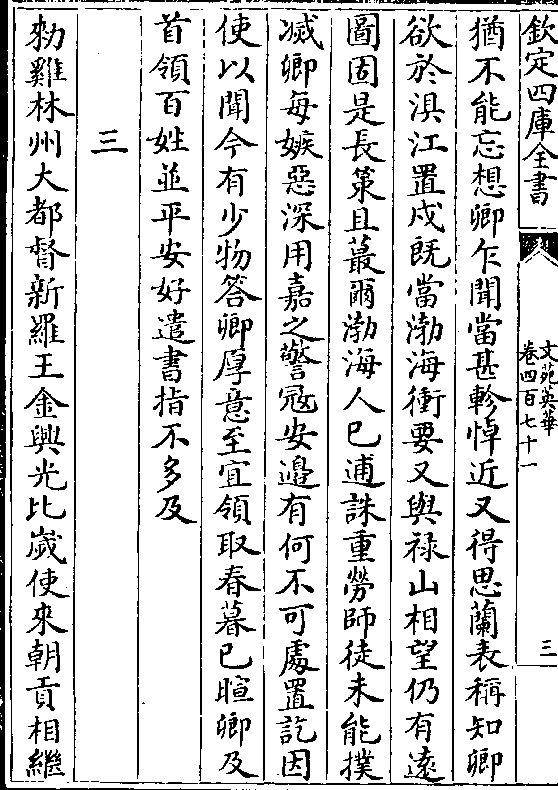 欽定四庫全書
文苑英華
卷四百七十一
三
猶不能忘想卿乍聞當甚軫悼近又得思蘭表稱知卿
欲於浿江置戍既當渤海衝要又與祿山相望仍有遠
圖固是長策且蕞爾渤海人已逋誅重勞師徒未能撲
滅卿每嫉惡深用嘉之警寇安邊有何不可處置訖因
使以聞今有少物答卿厚意至宜領取春暮已暄卿及
首領百姓並平安好遣書指不多及
三
勑雞林州大都督新羅王金興光比歲使來朝貢相繼